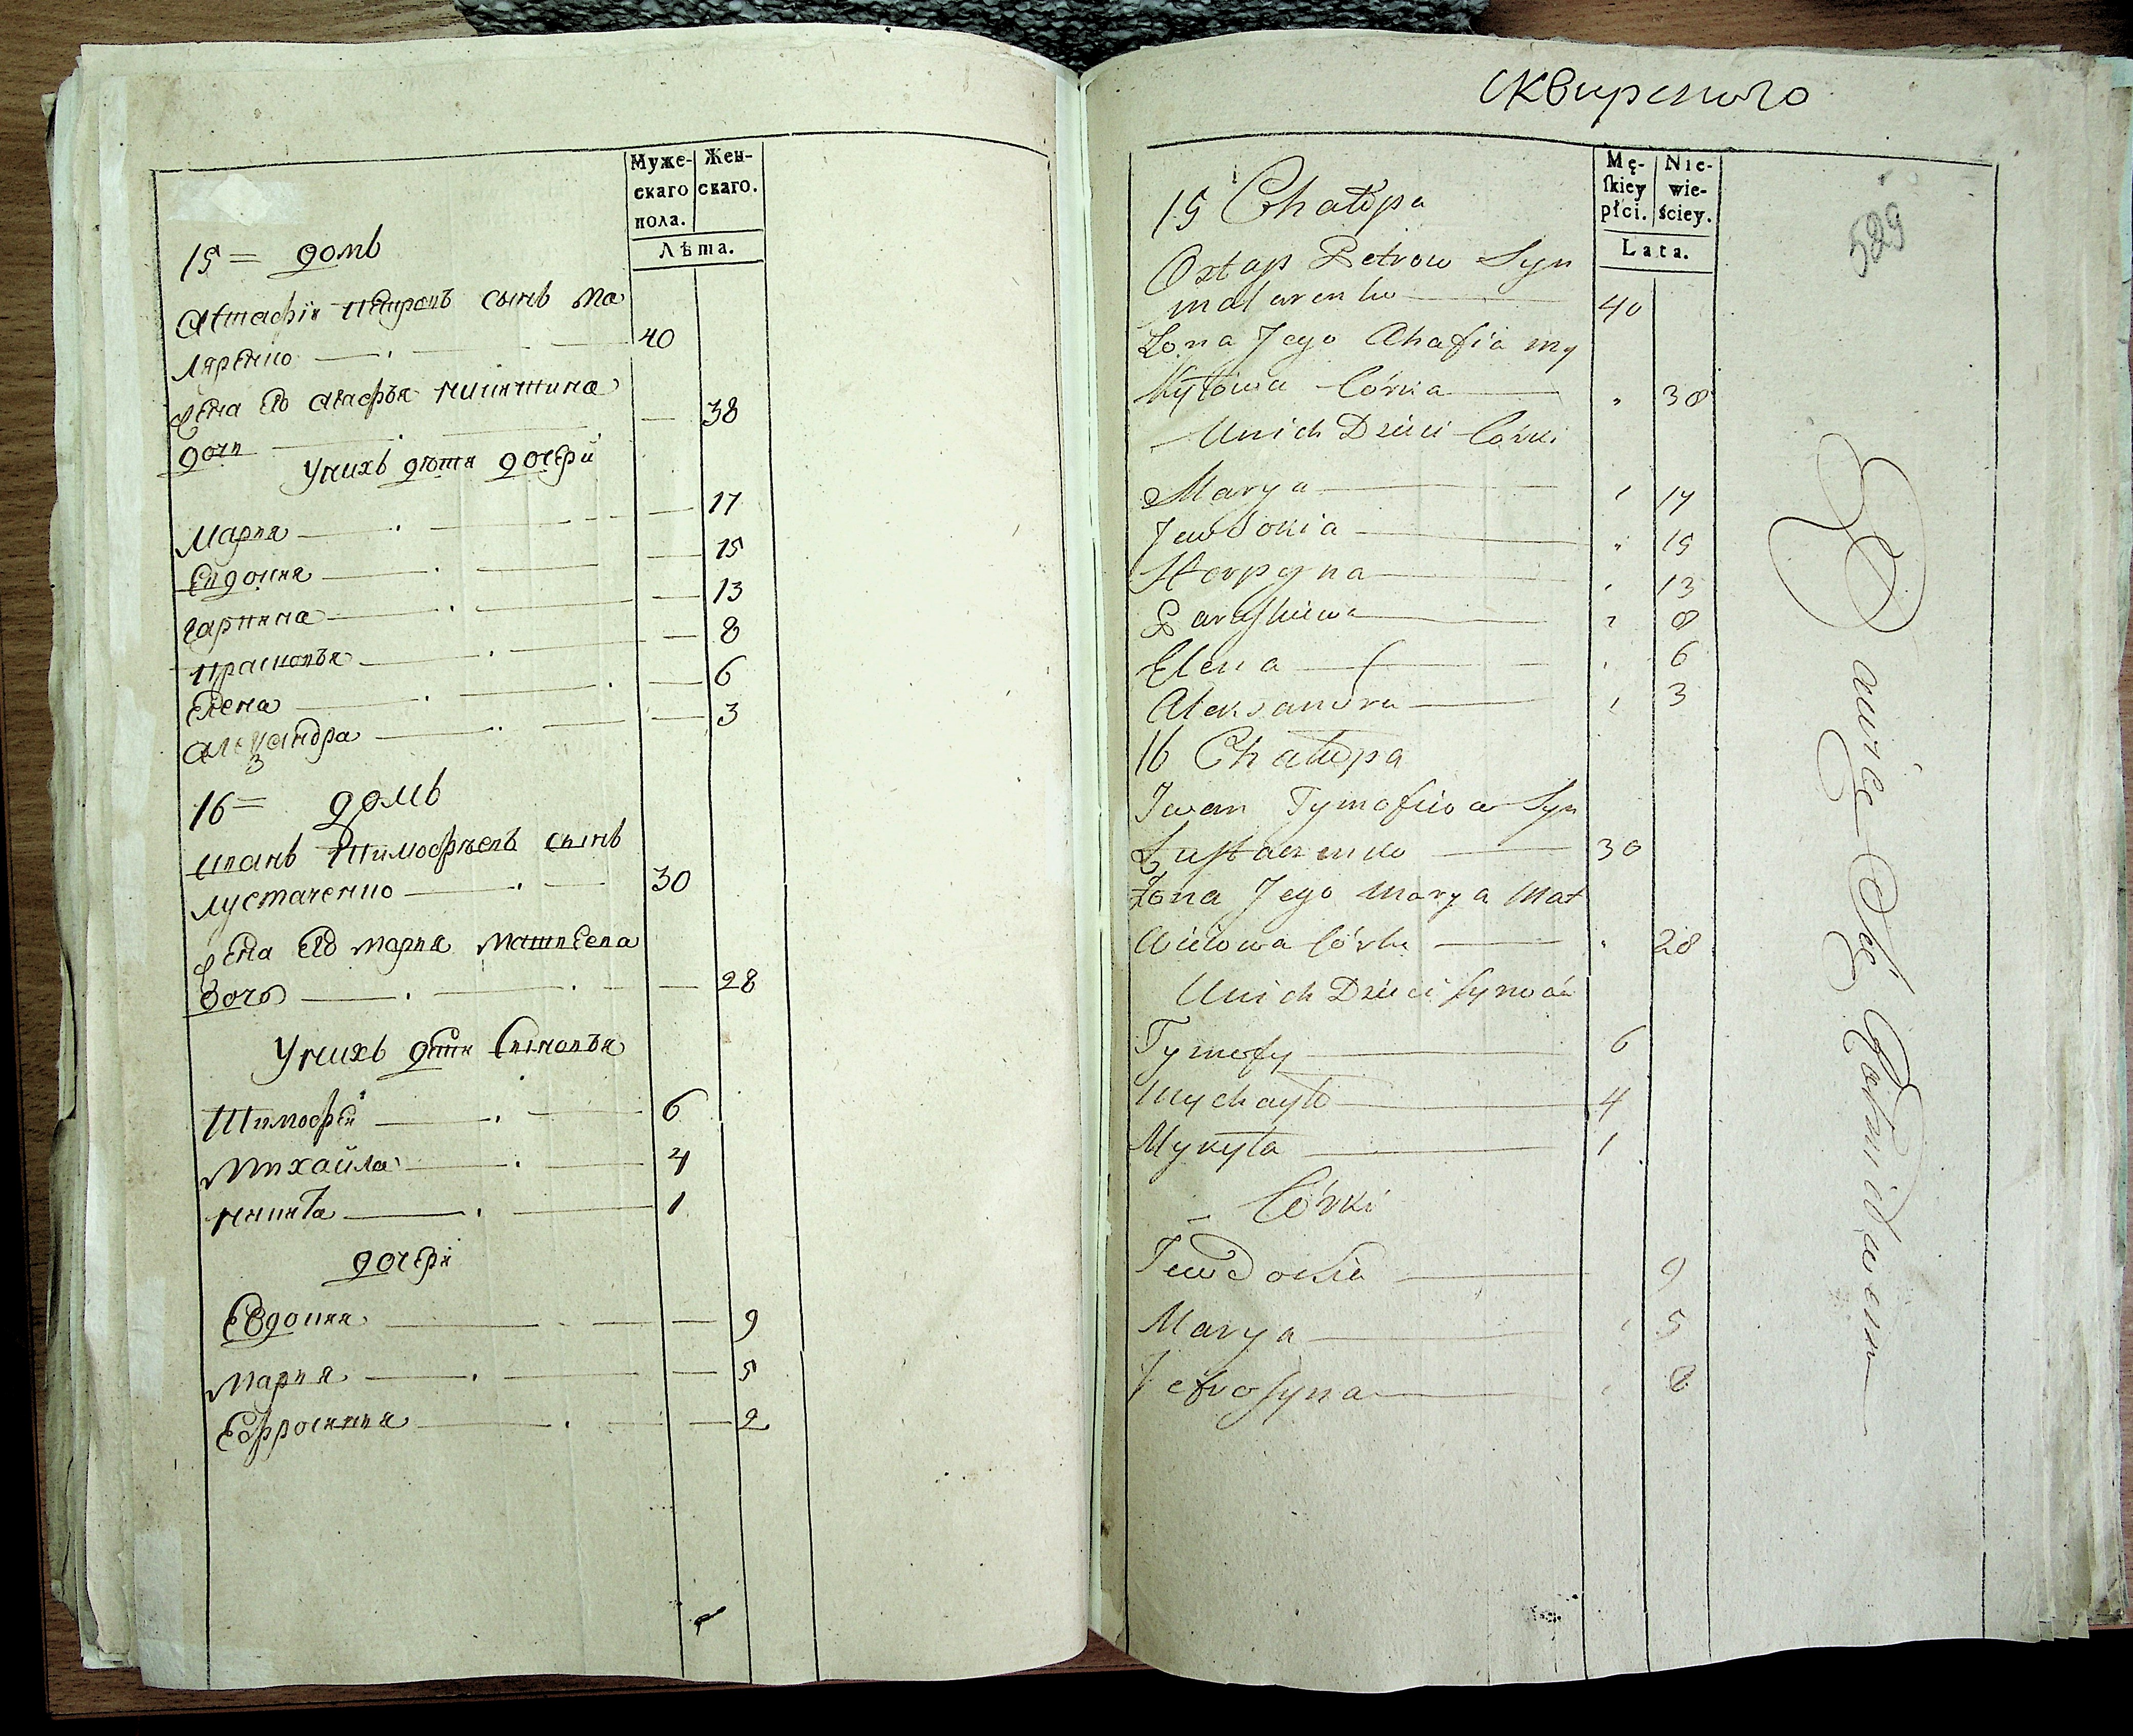 Муже-
скаго
пола.
Жен-
скаго.
Лѣта.
15 = домъ
Астафій Петровъ сынъ Ма
ляренко 40
Жена его Агафья Никитина
дочь 38
У нихъ дѣти дочери
Мария 17
Евдокия 15
Гарпина 13
Прасковья 8
Елена 6
Александра 3
16 = домъ
Иванъ Тимофѣевъ сынъ
Лустаченко 30
Жена его Мария Матвеева
дочь 28
У нихъ дѣти сыновья
Тимофей 6
Михайла 4
Никита 1
дочери
Евдокия 9
Мария 5
Ефросиния 2
сквирского
529
Mę-
skiey
płci.
Nie-
wie-
ściey.
Lata.
15 Chałupa
Ostap Petrow Syn
malarenko 40
Żona Jego Ahafia my
kytowa Córka 38
U nich Dzieci Córki
Marya 17
Jewdokia 15
Horpyna 13
Paraskiewa 8
Elena 6
Aleksandra 3
16 Chałupa
Iwan Tymofiiow Syn
Łustaczenko 30
Żona Jego Marya Mat
wieiowa Córka 28
U nich Dzieci Synowie
Tymofy 6
Mychayło 4
Mykyta 1
Córki
Jewdokia 9
Marya 5
Jefrosyna 2